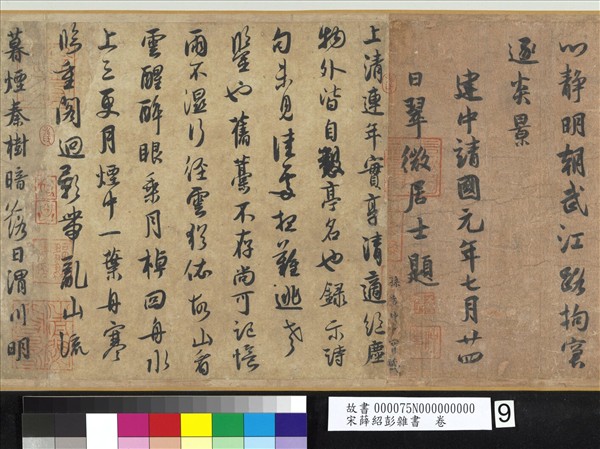 心靜明朝武江路拘窘
逐炎景
建中靖國元年七月廿四
日翠微居士題
上清連年實享清適絕塵
物外皆自製亭名也錄示詩
句未見佳處想難逃老
鑒也舊藁不存尚可記憶
雨不濕行徑雲猶依故山看
雲醒醉眼乘月棹回舟水
上三更月煙中一葉舟寒
臨重閣迥影帶亂山流
暮煙秦樹暗落日渭川明
故書 000075N000000000
宋薛紹彭雜書 卷
9